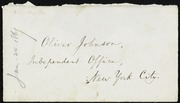 Oliver Johnson,
Independent Office,
New York City.